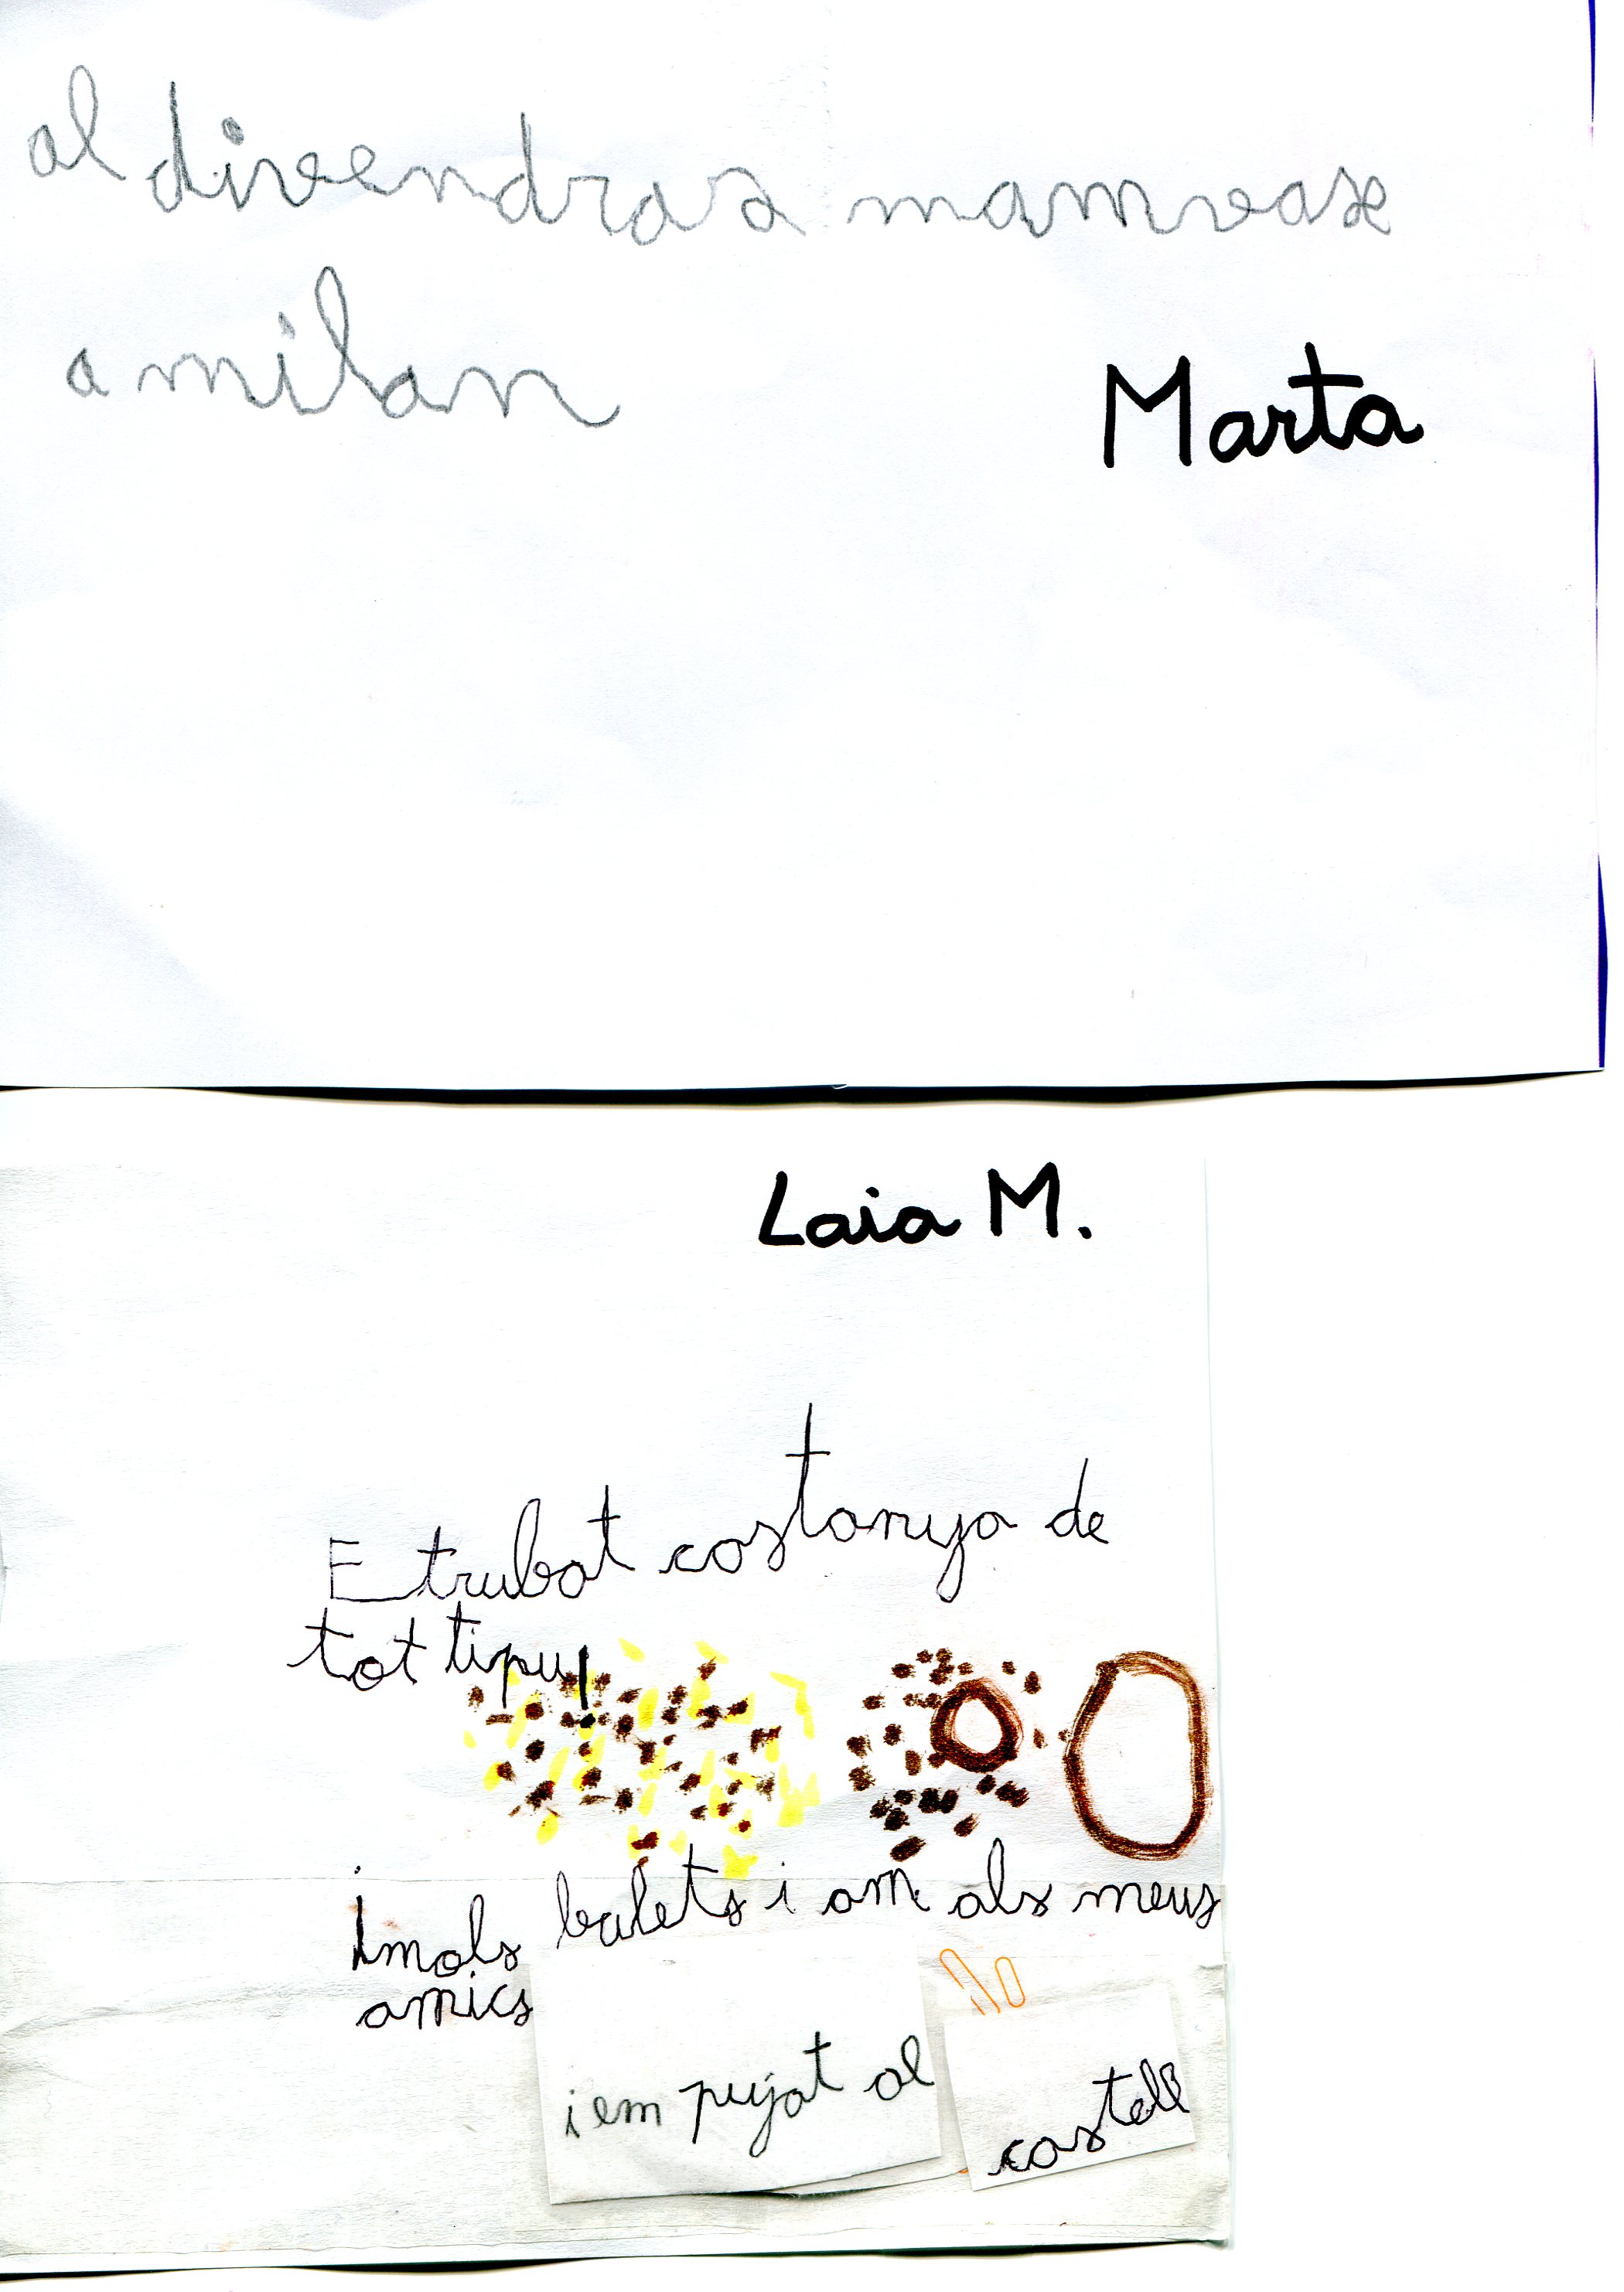 al divendras mamvax
a milan
Marta
Laia M.
E trubat castanya de
tot tipu
i mols bulets i am als meus
amics
i em pujat al
castell